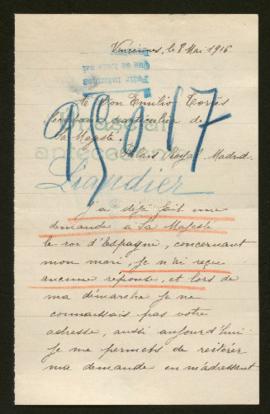 Vincennes, le 8 Mai 1916
95017
A Don Emilio Torrès
secrétaire particulier de
Sa Majesté.
Palais Royal Madrid.
Liandier
J'ai déjà fait une
demande à Sa Majesté
le roi d'Espagne, concernant
mon mari, je n'ai reçu
aucune réponse, et lors de
ma démarche je ne
connaissais pas votre
adresse, aussi aujourd'hui
je me permets de réitérer
ma demande en m'adressant